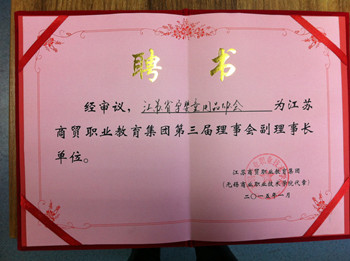 聘 书
经审议，江苏省 会 为江苏
商贸职业教育集团第三届理事会副理事长
单位。
江苏商贸职业教育集团
（无锡商业职业技术学院代章）
二〇一五年一月